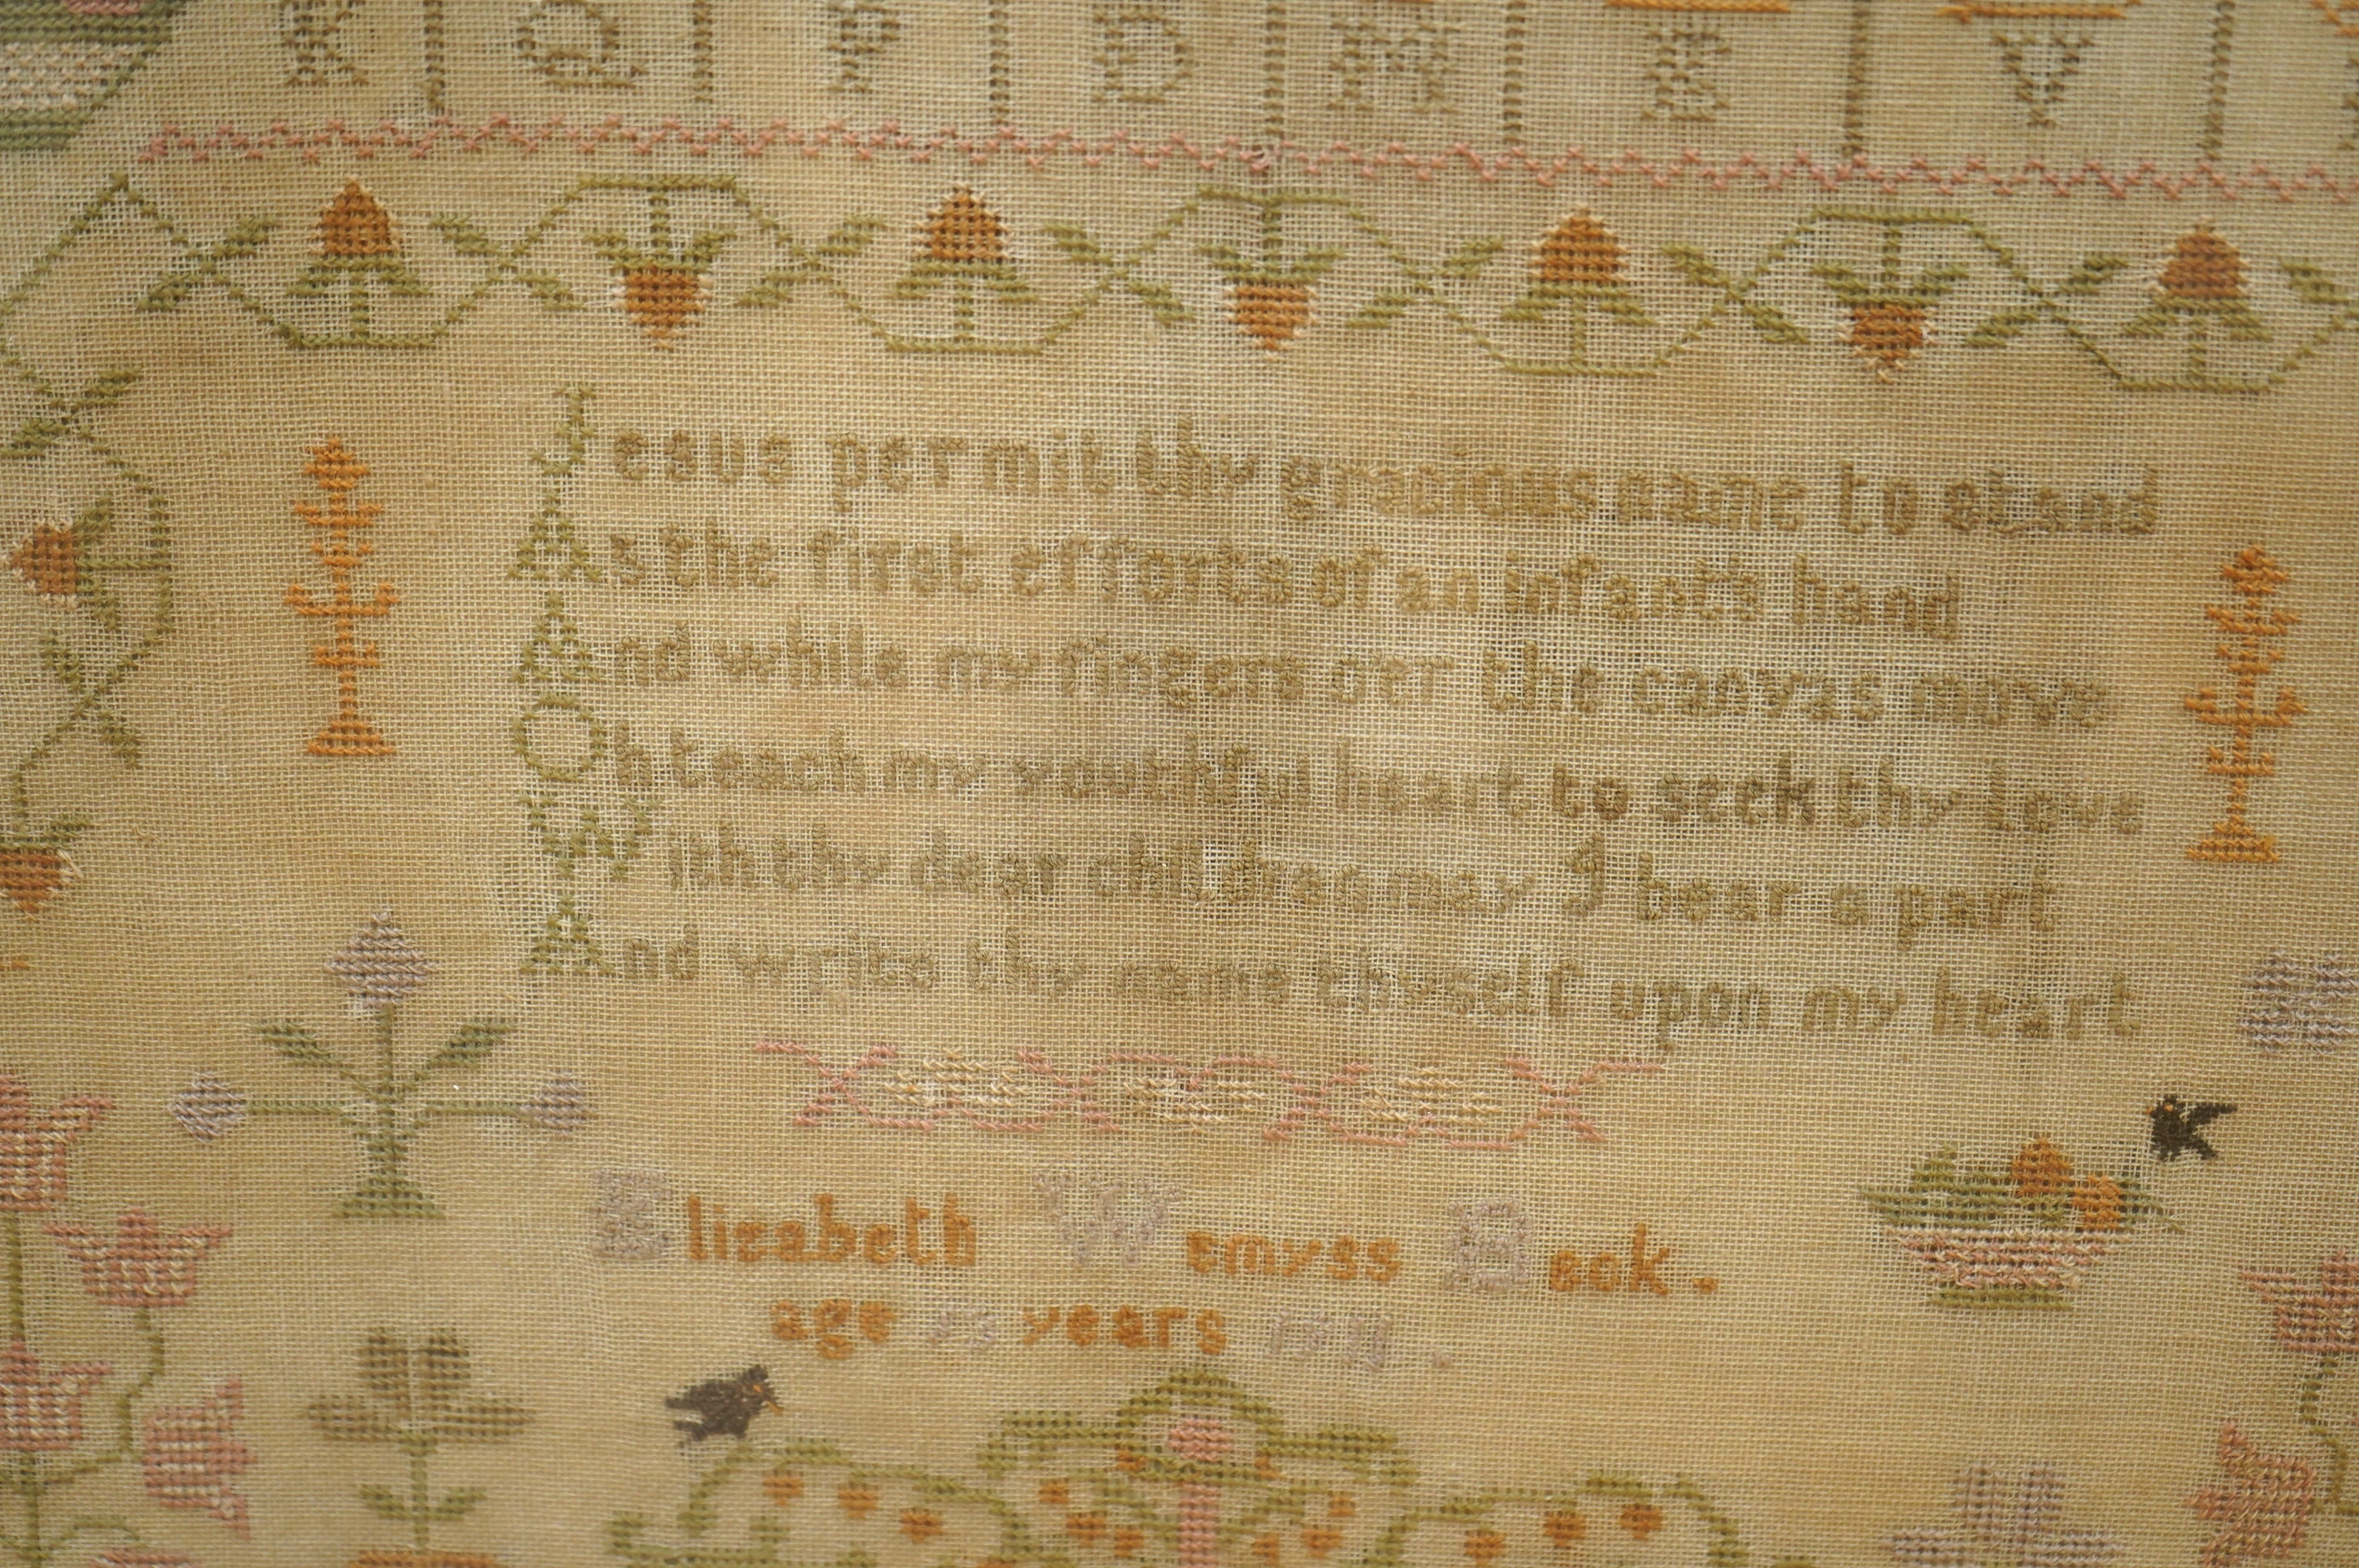 K Q P D M E V
Jesus permit thy gracious name to stand
As the first efforts of an Infant's hand
And while my fingers oer the canvas move
Oh teach my youthful heart to seek thy love
With thy dear children may I bear a part
And write thy name thyself upon my heart
Elizabeth Wemyss Beck.
age years